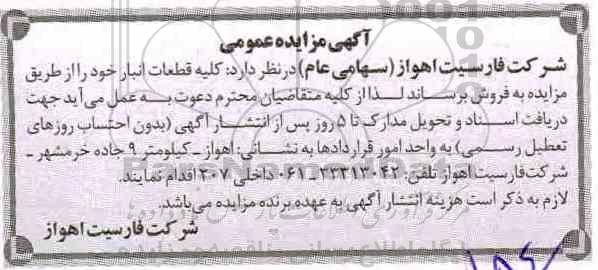 آگهی مزایده عمومی
شرکت فارسیت اهواز (سهامی عام) در نظر دارد: کلیه قطعات انبار خود را از طریق
مزایده به فروش برساند لذا از کلیه متقاضیان محترم دعوت به عمل می آید جهت
دریافت اسناد و تحویل مدارک تا ۵ روز پس از انتشار آگهی (بدون احتساب روزهای
تعطیل رسمی) به واحد امور قراردادها به نشانی: اهواز - کیلومتر ۹ جاده خرمشهر -
شرکت فارسیت اهواز تلفن: ۳۳۳۱۳۰۴۲-۰۶۱ داخلی ۲۰۷ اقدام نمایند.
لازم به ذکر است هزینه انتشار آگهی به عهده برنده مزایده می باشد.
شرکت فارسیت اهواز